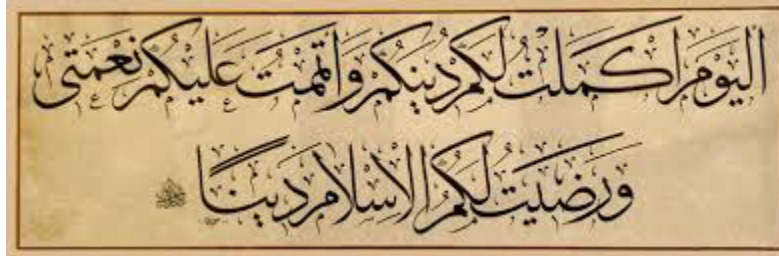 اليَوْمَ اَكْمَلْتُ لَكُمْ دِينَكُمْ وَاَتْمَمْتُ عَلَيْكُمْ نِعْمَتِى
وَرَضِيتُ لَكُمُ الْاِسْلَامَ دِينًا